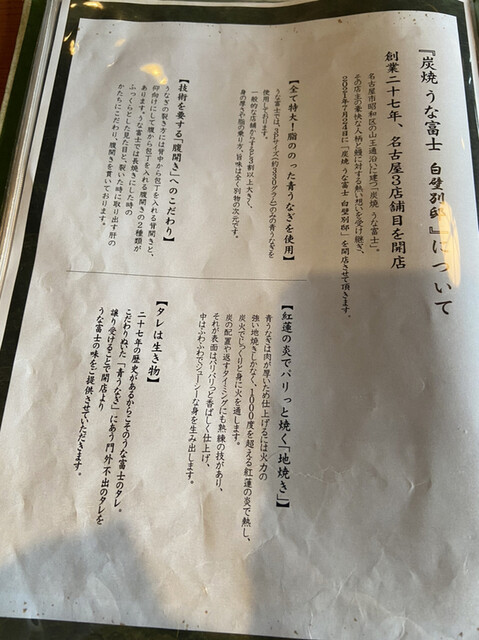 『炭焼 うな富士 白壁別邸』について
創業二十七年、名古屋3店舗目を開店
名古屋市昭和区の山王通沿いに建つ「炭焼 うな富士」。
その店主の豪快な人柄と鰻に対する熱い想いを受け継ぎ、
2021年7月24日に「炭焼 うな富士 白壁別邸」を開店させて頂きます。
【全て特大!脂ののった青うなぎを使用】
うな富士では、3Lサイズ(約330グラム)のみの青うなぎを
使用しております。
一般的な店舗からすると3割以上大きく、
身の厚さや脂の乗り方、旨味は全く別物の次元です。
【技術を要する「腹開き」へのこだわり】
うなぎの裂き方には背中から包丁を入れる背開きと、
仰向けにして腹から包丁を入れる腹開きの2種類が
あります。うな富士では長焼きにした時の
ふっくらとした見た目と、裂いた時に取り出す肝の
かたちにこだわり、腹開きを貫いております。
【紅蓮の炎でパリっと焼く「地焼き」】
青うなぎは肉が厚いため仕上げるには火力の
強い地焼きしかなく、1000度を超える紅蓮の炎で熱し、
炭火でじっくりと身に火を通します。
炭の配置や返すタイミングにも熟練の技があり、
それが表面はパリパリっと香ばしく仕上げ、
中はふわふわでジューシーな身を生み出します。
【タレは生き物】
二十七年の歴史があるからこそのうな富士のタレ。
こだわりぬいた「青うなぎ」にあう門外不出のタレを
譲り受けることで開店より
うな富士の味をご提供させていただきます。